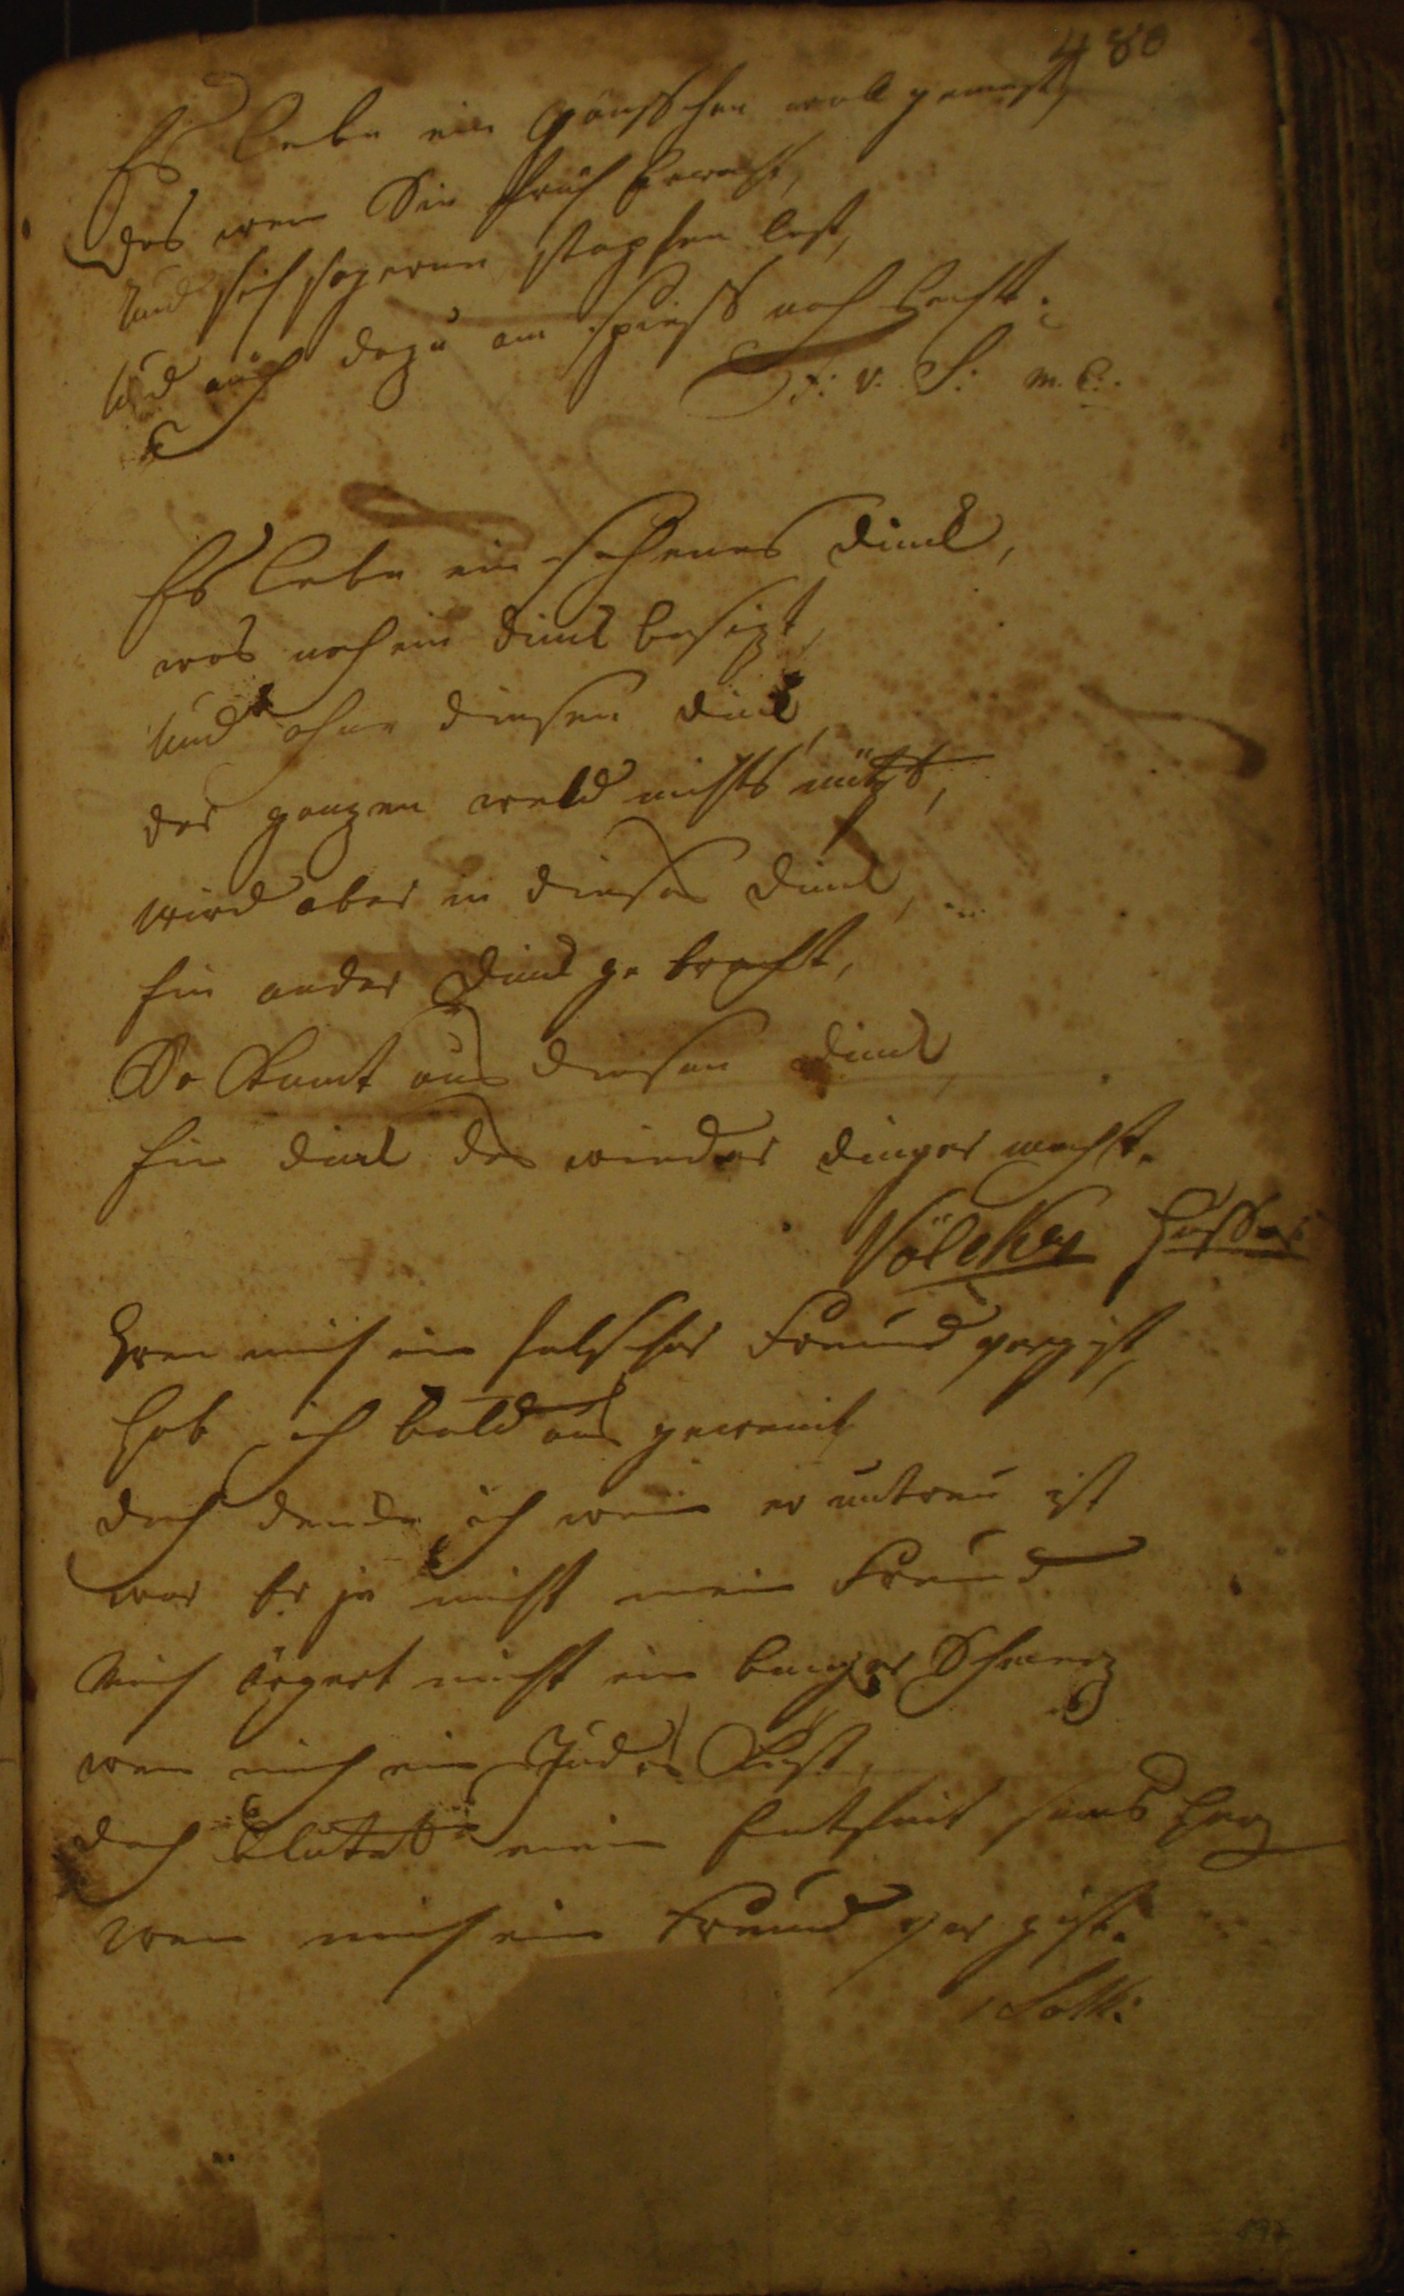 480
Es lebe ein gänsschen woll gemest,
das wen Sie früh erwacht,
und sich so gerne stopfen lest,
und auch dazu am spiess noch lacht.
F: v: S: m. C:.
Es lebe ein schenes dinl,
was noch ein dinl besizt,
und ohne diesen dinl,
der ganzen weld nichts nützt,
wird aber in dieses dinl,
Ein ander dinl ge bracht,
So kumt aus diesen dinl,
Ein dinl das wieder dinger macht.
Völcky
wen mich ein falscher Freund vergist,
hab ich bald aus geweint
doch denck ich wenn er untreu ist
war Er ja nicht mein Freund
mich ärgert nicht ein banger Schmerz
wen mich ein Judas Küst,
doch blutet mein Herz
wen mich ein Freund ver gist.